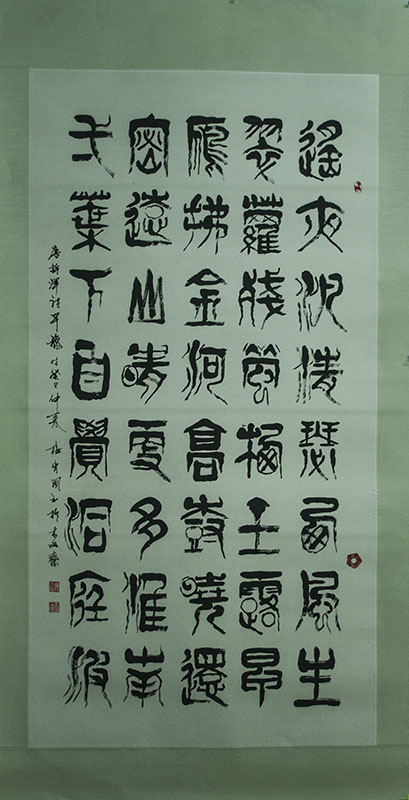 遙夜汎清瑟西風生
翠蘿殘螢栖玉露早
鴈拂金河高樹曉還
密遠山晴更多淮南
弌葉下自覺洞庭波
唐許渾詩早龝時癸巳仲夏